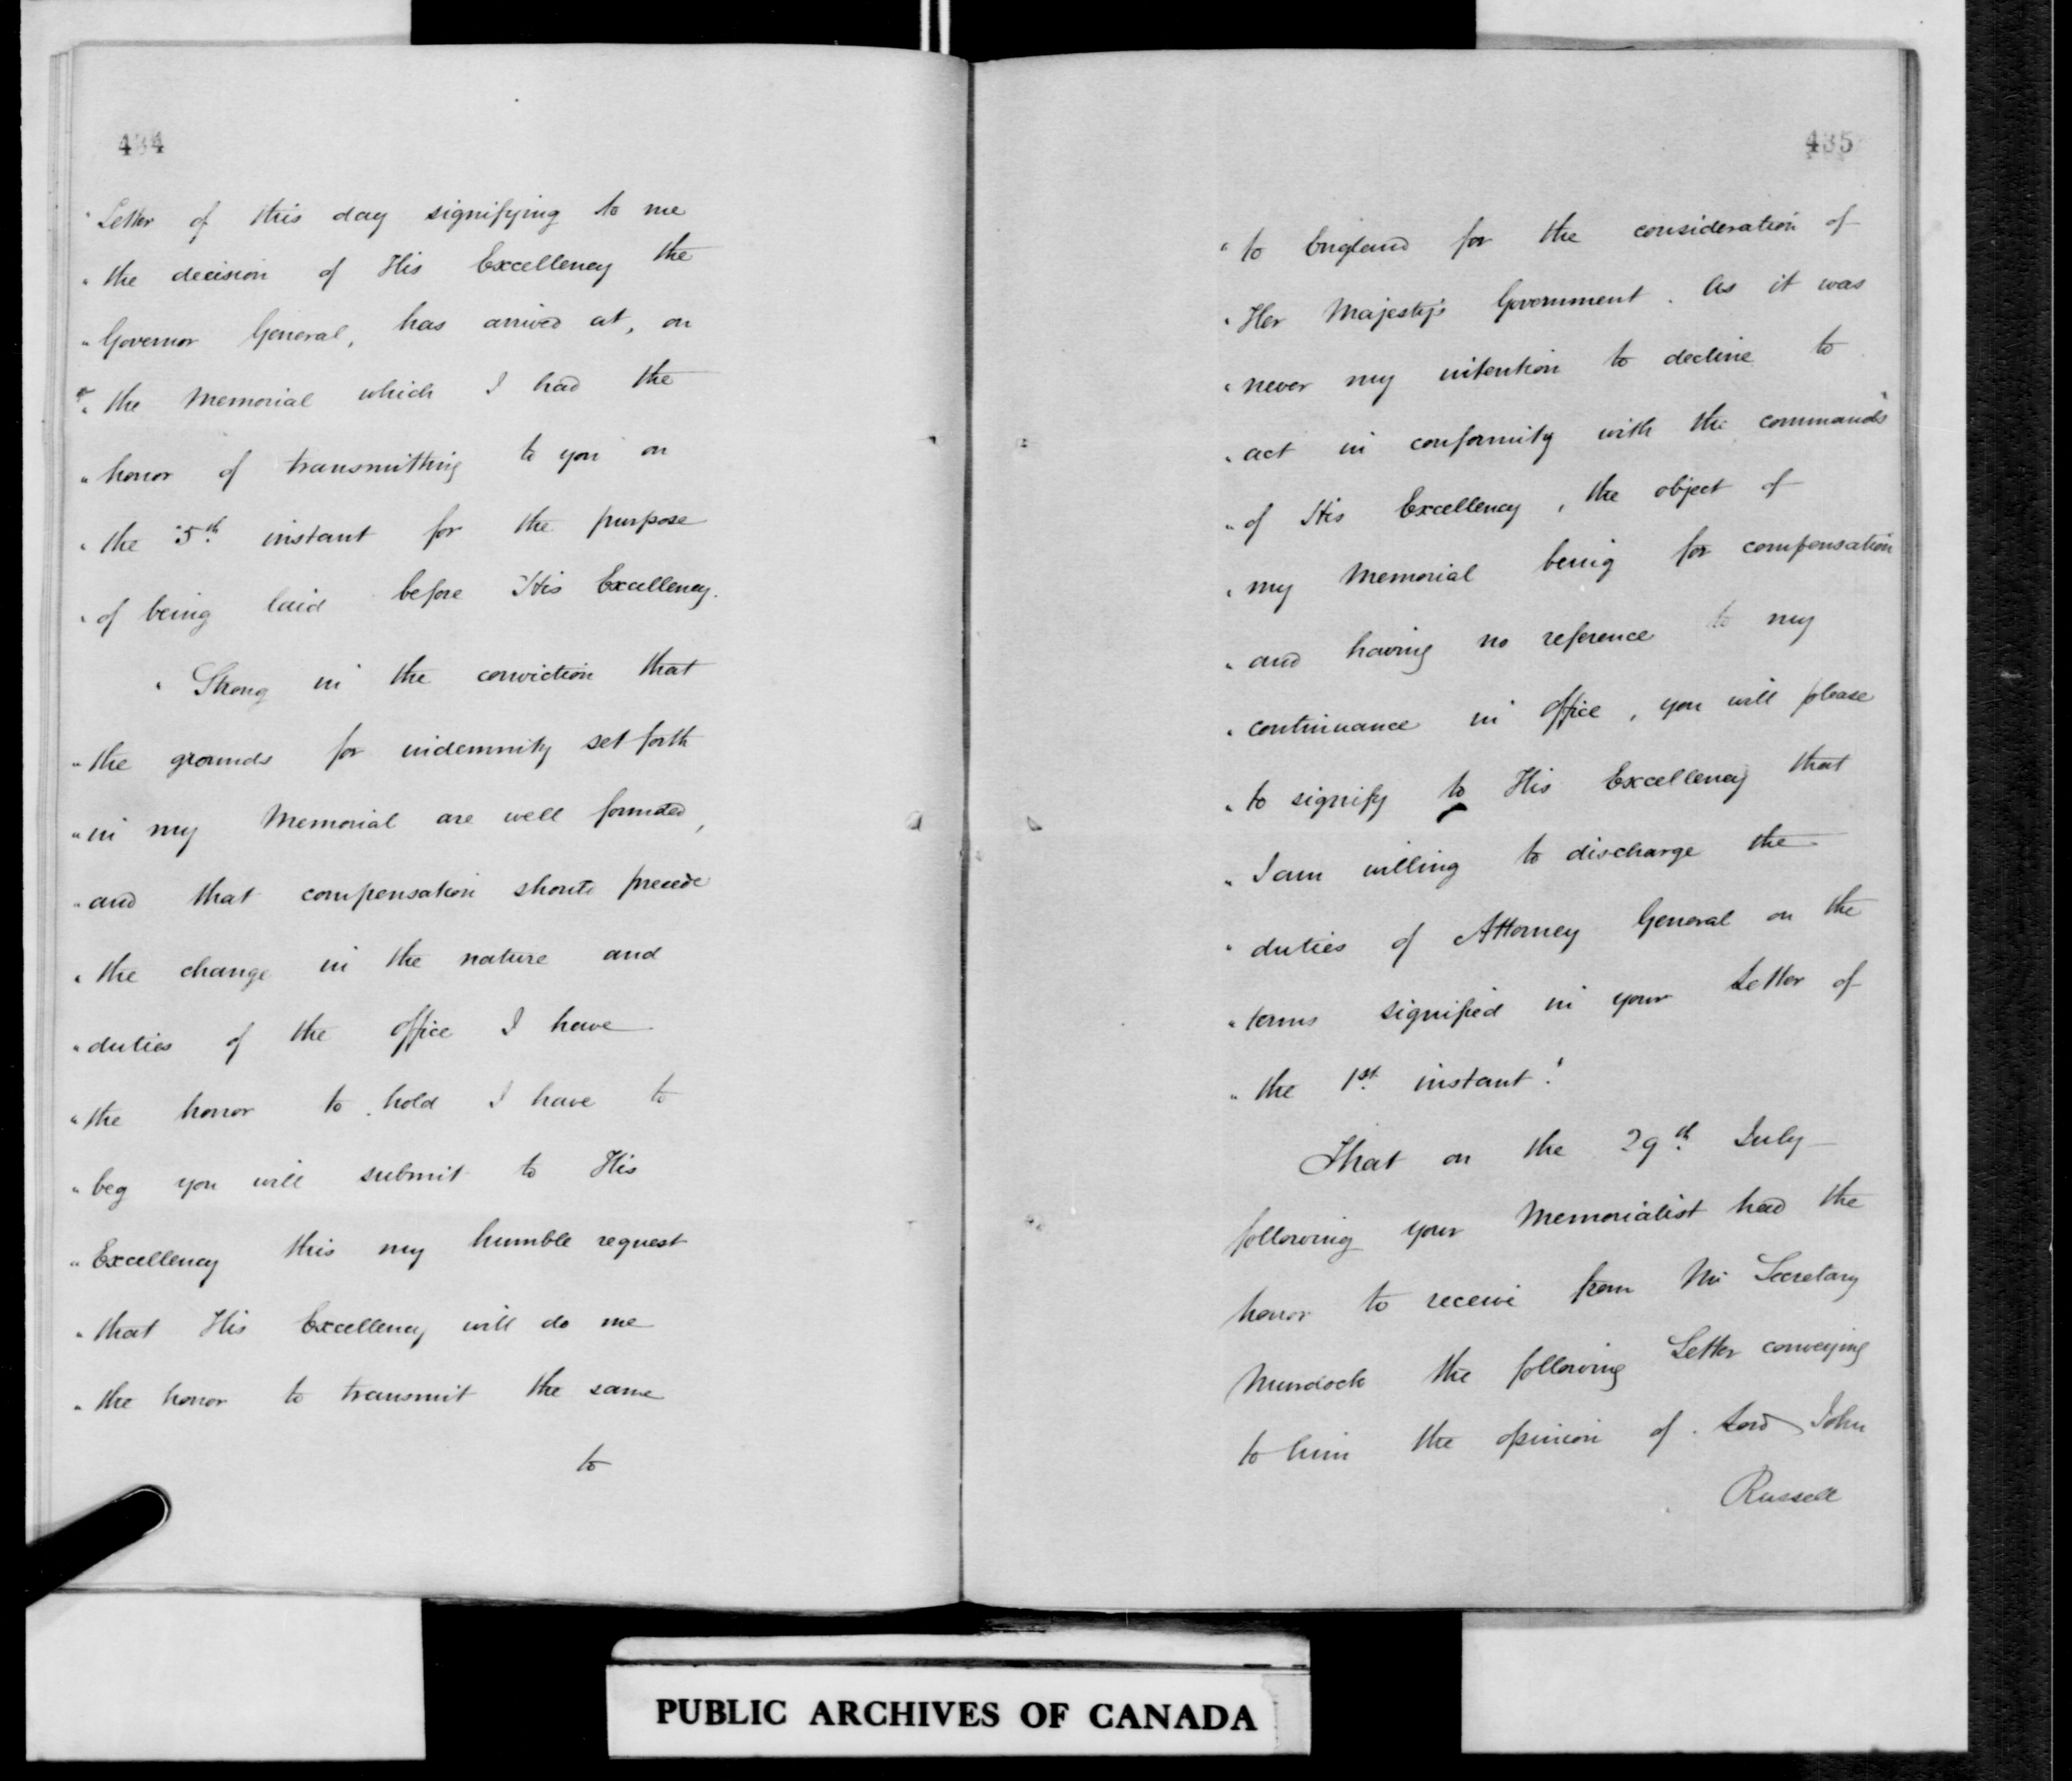 434
"Letter of this day signifying to me
"the decision of His Excellency the
"Governor General, has arrived at, on
"the Memorial which I had the
"honor of transmitting to you on
"the 5th instant for the purpose
"of being laid before His Excellency.
"Strong in the conviction that
"the grounds for indemnity set forth
"in my Memorial are well founded,
"and that compensation should precede
"the change in the nature and
"duties of the office I have
"the honor to hold I have to
"beg you will submit to His
"Excellency this my humble request
"that His Excellency will do me
"the honor to transmit the same
to
435
"to England for the consideration of
"Her Majesty's Government. As it was
"never my intention to decline to
"act in conformity with the commands
"of His Excellency, the object of
"my Memorial being for compensation
"and having no reference to my
"continuance in office, you will please
"to signify to His Excellency that
"I am willing to discharge the
"duties of Attorney General on the
"terms signified in your Letter of
"the 1st instant."
That on the 29th July
following your Memorialist had the
honor to receive from Mr Secretary
Murdock the following Letter conveying
to him the opinion of Lord John
Russell
PUBLIC ARCHIVES OF CANADA